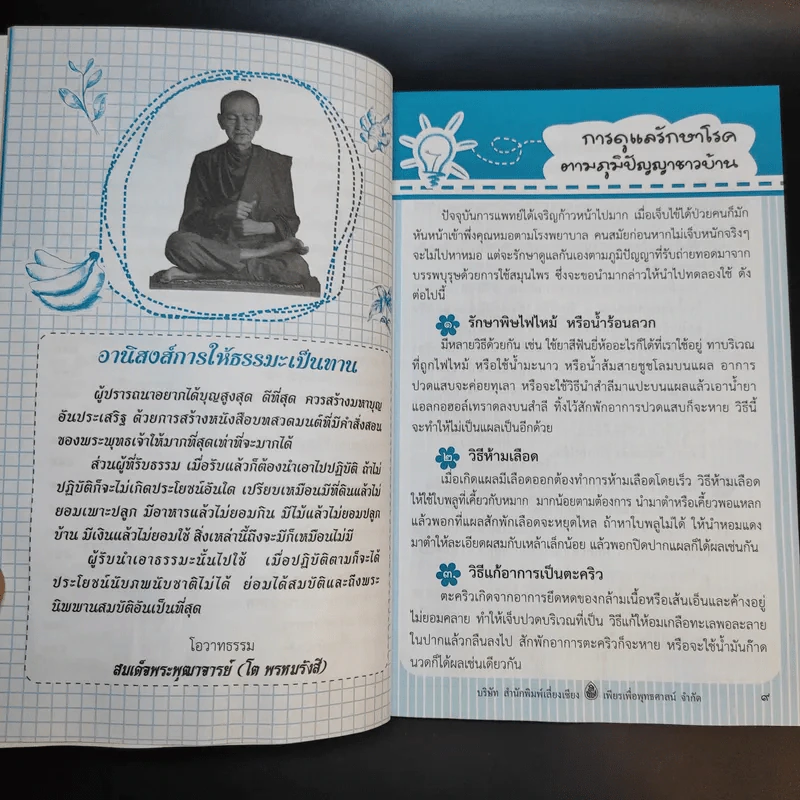 อานิสงส์การให้ธรรมะเป็นทาน
ผู้ปรารถนาอยากได้บุญสูงสุด ดีที่สุด ควรสร้างมหาบุญ
อันประเสริฐ ด้วยการสร้างหนังสือบทสวดมนต์ที่มีคำสั่งสอน
ของพระพุทธเจ้าให้มากที่สุดเท่าที่จะมากได้
ส่วนผู้ที่รับธรรม เมื่อรับแล้วก็ต้องนำเอาไปปฏิบัติ ถ้าไม่
ปฏิบัติก็จะไม่เกิดประโยชน์อันใด เปรียบเหมือนมีที่ดินแล้วไม่
ยอมเพาะปลูก มีอาหารแล้วไม่ยอมกิน มีไม้แล้วไม่ยอมปลูก
บ้าน มีเงินแล้วไม่ยอมใช้ สิ่งเหล่านี้ถึงจะมีก็เหมือนไม่มี
ผู้รับนำเอาธรรมะนั้นไปใช้ เมื่อปฏิบัติตามก็จะได้
ประโยชน์นับภพนับชาติไม่ได้ ย่อมได้สมบัติและถึงพระ
นิพพานสมบัติอันเป็นที่สุด
โอวาทธรรม
สมเด็จพระพุฒาจารย์ (โต พรหมรังสี)
การดูแลรักษาโรค
ตามภูมิปัญญาชาวบ้าน
ปัจจุบันการแพทย์ได้เจริญก้าวหน้าไปมาก เมื่อเจ็บไข้ได้ป่วยคนก็มัก
หันหน้าเข้าพึ่งคุณหมอตามโรงพยาบาล คนสมัยก่อนหากไม่เจ็บหนักจริงๆ
จะไม่ไปหาหมอ แต่จะรักษาดูแลกันเองตามภูมิปัญญาที่รับถ่ายทอดมาจาก
บรรพบุรุษด้วยการใช้สมุนไพร ซึ่งจะขอนำมากล่าวให้นำไปทดลองใช้ ดัง
ต่อไปนี้
๑ รักษาพิษไฟไหม้ หรือน้ำร้อนลวก
มีหลายวิธีด้วยกัน เช่น ใช้ยาสีฟันยี่ห้ออะไรก็ได้ที่เราใช้อยู่ ทาบริเวณ
ที่ถูกไฟไหม้ หรือใช้น้ำมะนาว หรือน้ำส้มสายชูชโลมบนแผล อาการ
ปวดแสบจะค่อยทุเลา หรือจะใช้วิธีนำสำลีมาแปะบนแผลแล้วเอาน้ำยา
แอลกอฮอล์เทราดลงบนสำลี ทิ้งไว้สักพักอาการปวดแสบก็จะหาย วิธีนี้
จะทำให้ไม่เป็นแผลเป็นอีกด้วย
๒ วิธีห้ามเลือด
เมื่อเกิดแผลมีเลือดออกต้องทำการห้ามเลือดโดยเร็ว วิธีห้ามเลือด
ให้ใช้ใบพลูที่เคี้ยวกับหมาก มากน้อยตามต้องการ นำมาตำหรือเคี้ยวพอแหลก
แล้วพอกที่แผลสักพักเลือดจะหยุดไหล ถ้าหาใบพลูไม่ได้ ให้นำหอมแดง
มาตำให้ละเอียดผสมกับเหล้าเล็กน้อย แล้วพอกปิดปากแผลก็ได้ผลเช่นกัน
๓ วิธีแก้อาการเป็นตะคริว
ตะคริวเกิดจากอาการยึดหดของกล้ามเนื้อหรือเส้นเอ็นและค้างอยู่
ไม่ยอมคลาย ทำให้เจ็บปวดบริเวณที่เป็น วิธีแก้ให้อมเกลือทะเลพอละลาย
ในปากแล้วกลืนลงไป สักพักอาการตะคริวก็จะหาย หรือจะใช้น้ำมันก๊าด
นวดก็ได้ผลเช่นเดียวกัน
บริษัท สำนักพิมพ์เลี่ยงเชียง เพียรเพื่อพุทธศาสน์ จำกัด ๙